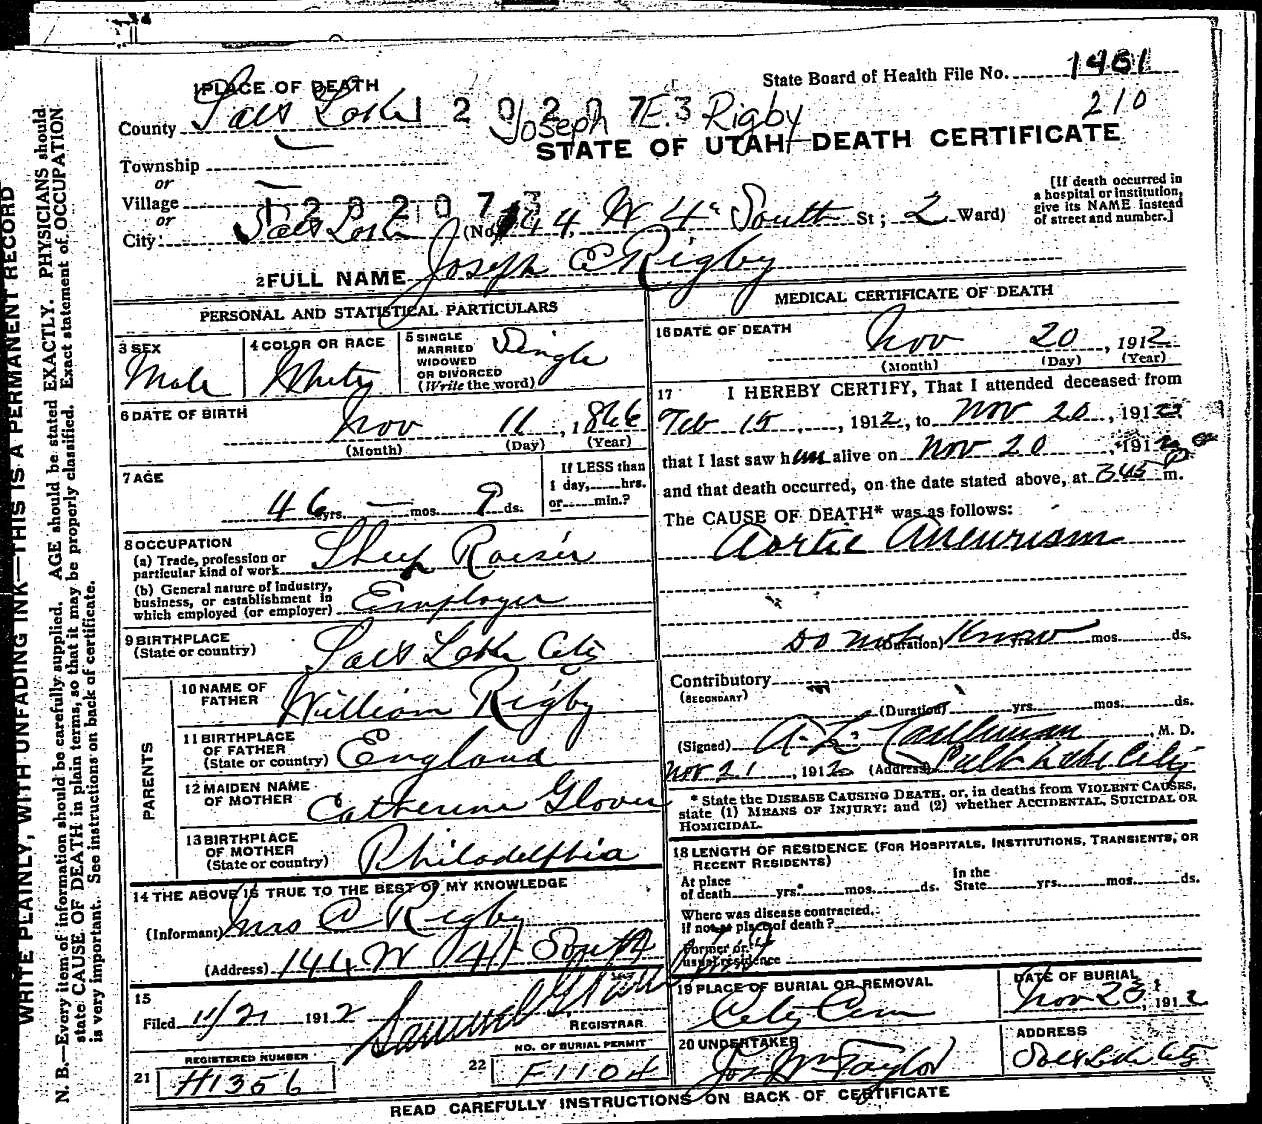 1 PLACE OF DEATH
State Board of Health File No. 1461
210
County Salt Lake
1202073
Joseph E. Rigby
STATE OF UTAH—DEATH CERTIFICATE
Township
or
Village
1202073
or
City: Salt Lake (No. 144 W 4" South St; 2 Ward)
[If death occurred in a hospital or institution, give its NAME instead of street and number.]
2 FULL NAME Joseph E Rigby
PERSONAL AND STATISTICAL PARTICULARS
3 SEX
Male
4 COLOR OR RACE
White
5 SINGLE MARRIED WIDOWED OR DIVORCED (Write the word)
Single
6 DATE OF BIRTH
Nov 11, 1866
(Month) (Day) (Year)
7 AGE
46 yrs. — mos. 9 ds.
If LESS than 1 day, hrs. or min.?
8 OCCUPATION
(a) Trade, profession or particular kind of work Sheep Raiser
(b) General nature of industry, business, or establishment in which employed (or employer) Employer
9 BIRTHPLACE
(State or country) Salt Lake City
PARENTS
10 NAME OF FATHER William Rigby
11 BIRTHPLACE OF FATHER (State or country) England
12 MAIDEN NAME OF MOTHER Catherine Glover
13 BIRTHPLACE OF MOTHER (State or country) Philadelphia
14 THE ABOVE IS TRUE TO THE BEST OF MY KNOWLEDGE
(Informant) Mrs C Rigby
(Address) 144 W 4th South
15
Filed 11/21 1912
REGISTRAR
REGISTERED NUMBER
21 H1356
NO. OF BURIAL PERMIT
22 F1104
MEDICAL CERTIFICATE OF DEATH
16 DATE OF DEATH
Nov 20, 1912
(Month) (Day) (Year)
17 I HEREBY CERTIFY, That I attended deceased from
Feb 15, 1912, to Nov 20, 1912
that I last saw him alive on Nov 20, 1912
and that death occurred, on the date stated above, at 345 P m.
The CAUSE OF DEATH* was as follows:
Aortic Aneurism
Do not Know (Duration) yrs. mos. ds.
Contributory
(SECONDARY)
(Duration) yrs. mos. ds.
(Signed) A. L. M. D.
Nov 21, 1912 (Address) Salt Lake City
* State the DISEASE CAUSING DEATH, or, in deaths from VIOLENT CAUSES, state (1) MEANS OF INJURY; and (2) whether ACCIDENTAL, SUICIDAL OR HOMICIDAL.
18 LENGTH OF RESIDENCE (FOR HOSPITALS, INSTITUTIONS, TRANSIENTS, OR RECENT RESIDENTS)
At place of death yrs. mos. ds. In the State yrs. mos. ds.
Where was disease contracted, if not at place of death?
Former or usual residence
19 PLACE OF BURIAL OR REMOVAL
City Cem
DATE OF BURIAL
Nov 23, 1912
20 UNDERTAKER
Jos Wm Taylor
ADDRESS
Salt Lake City
READ CAREFULLY INSTRUCTIONS ON BACK OF CERTIFICATE
WRITE PLAINLY, WITH UNFADING INK—THIS IS A PERMANENT RECORD
N. B.—Every item of information should be carefully supplied. AGE should be stated EXACTLY. PHYSICIANS should
state CAUSE OF DEATH in plain terms, so that it may be properly classified. Exact statement of OCCUPATION
is very important. See instructions on back of certificate.